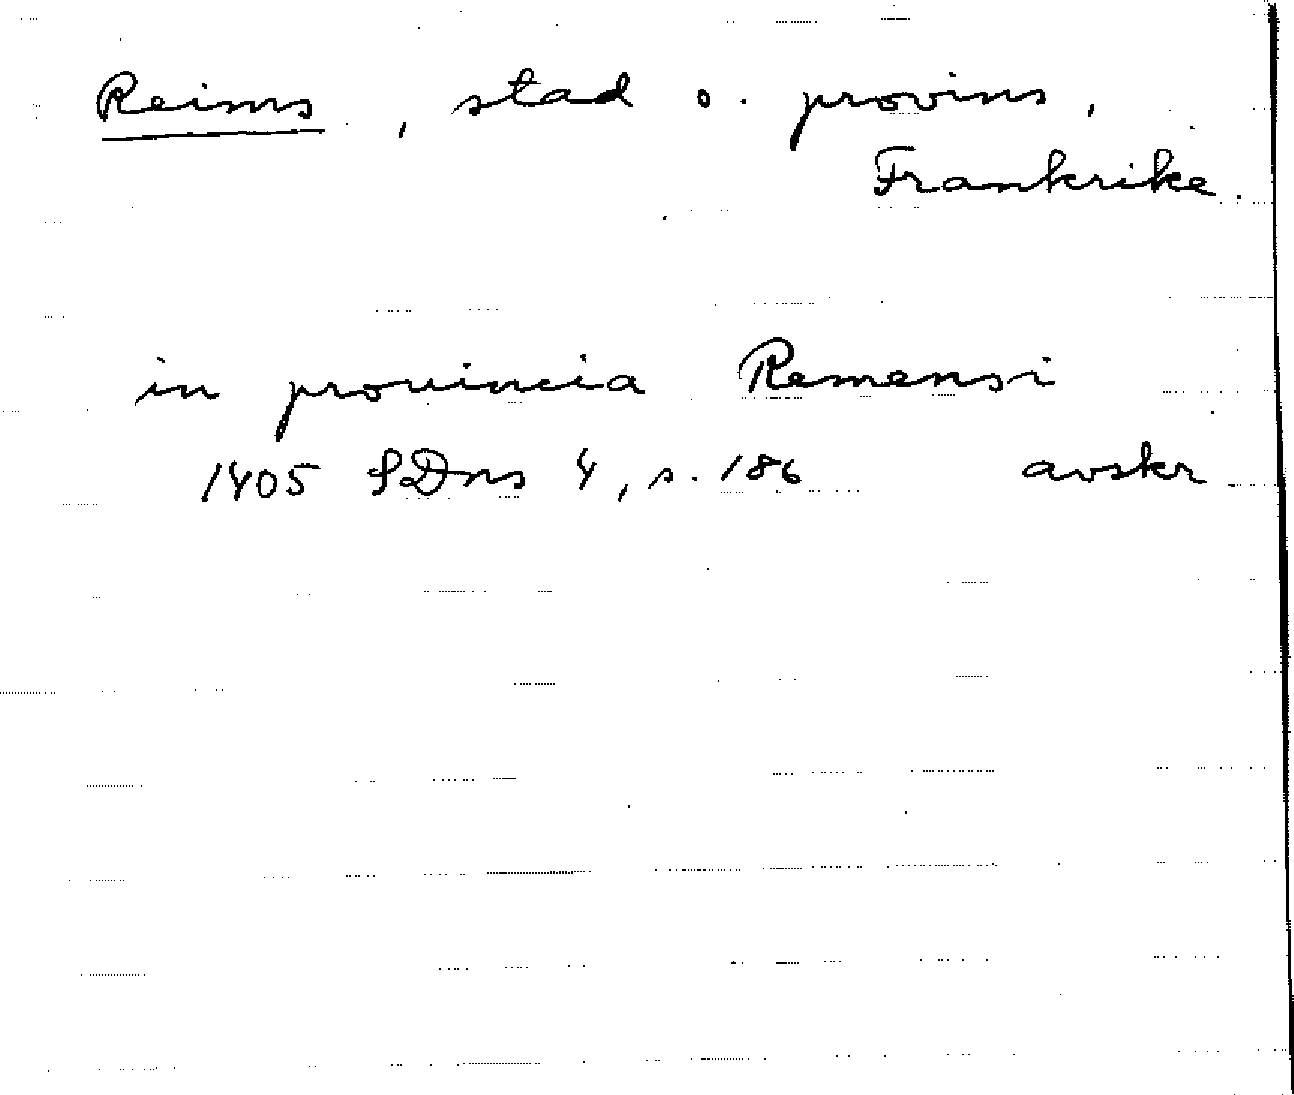 Reims, stad o. provins,
Frankrike.
in prouincia Remensi
1405 SDns 4, s. 186 avskr